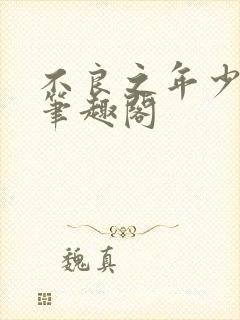 不良之年少
筆趣閣
魏真